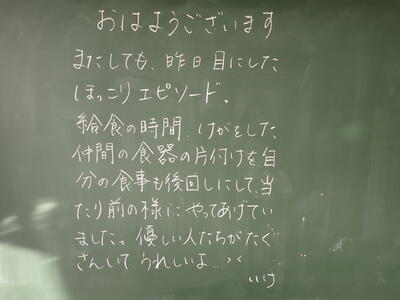 おはようございます
またしても、昨日目にした
ほっこりエピソード。
給食の時間、けがをした
仲間の食器の片付けを自
分の食事も後回しにして、当
たり前の様に やってあげてい
ました。優しい人たちがたく
さんいて、うれしいよ…
いけ